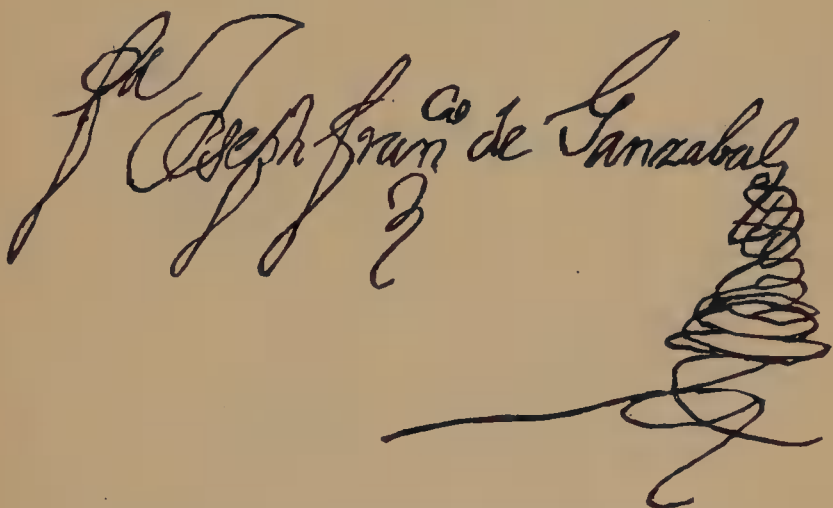 Joseph fran^co de Ganzabal